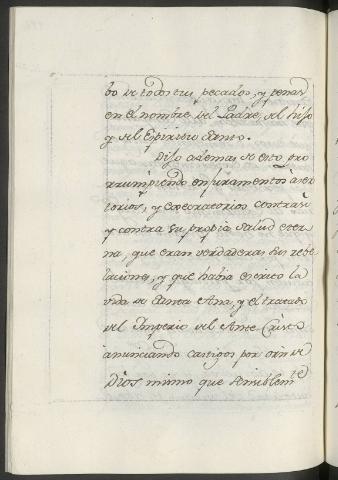 bo de todos tus pecados, y penas
en el nombre del Padre, del hijo
y del Espiritu Santo.
Dijo ademas de esto, pro
rrumpiendo en juramentos aser
torios, y execratorios contra si
y contra su propia salud eter
na, que eran verdaderas sus reve
laciones, y que havia escrito la
vida de Santa Ana, y el tratado
del Imperio del Ante Cristo
anunciando castigos por orn de
Dios mismo que sensiblemte